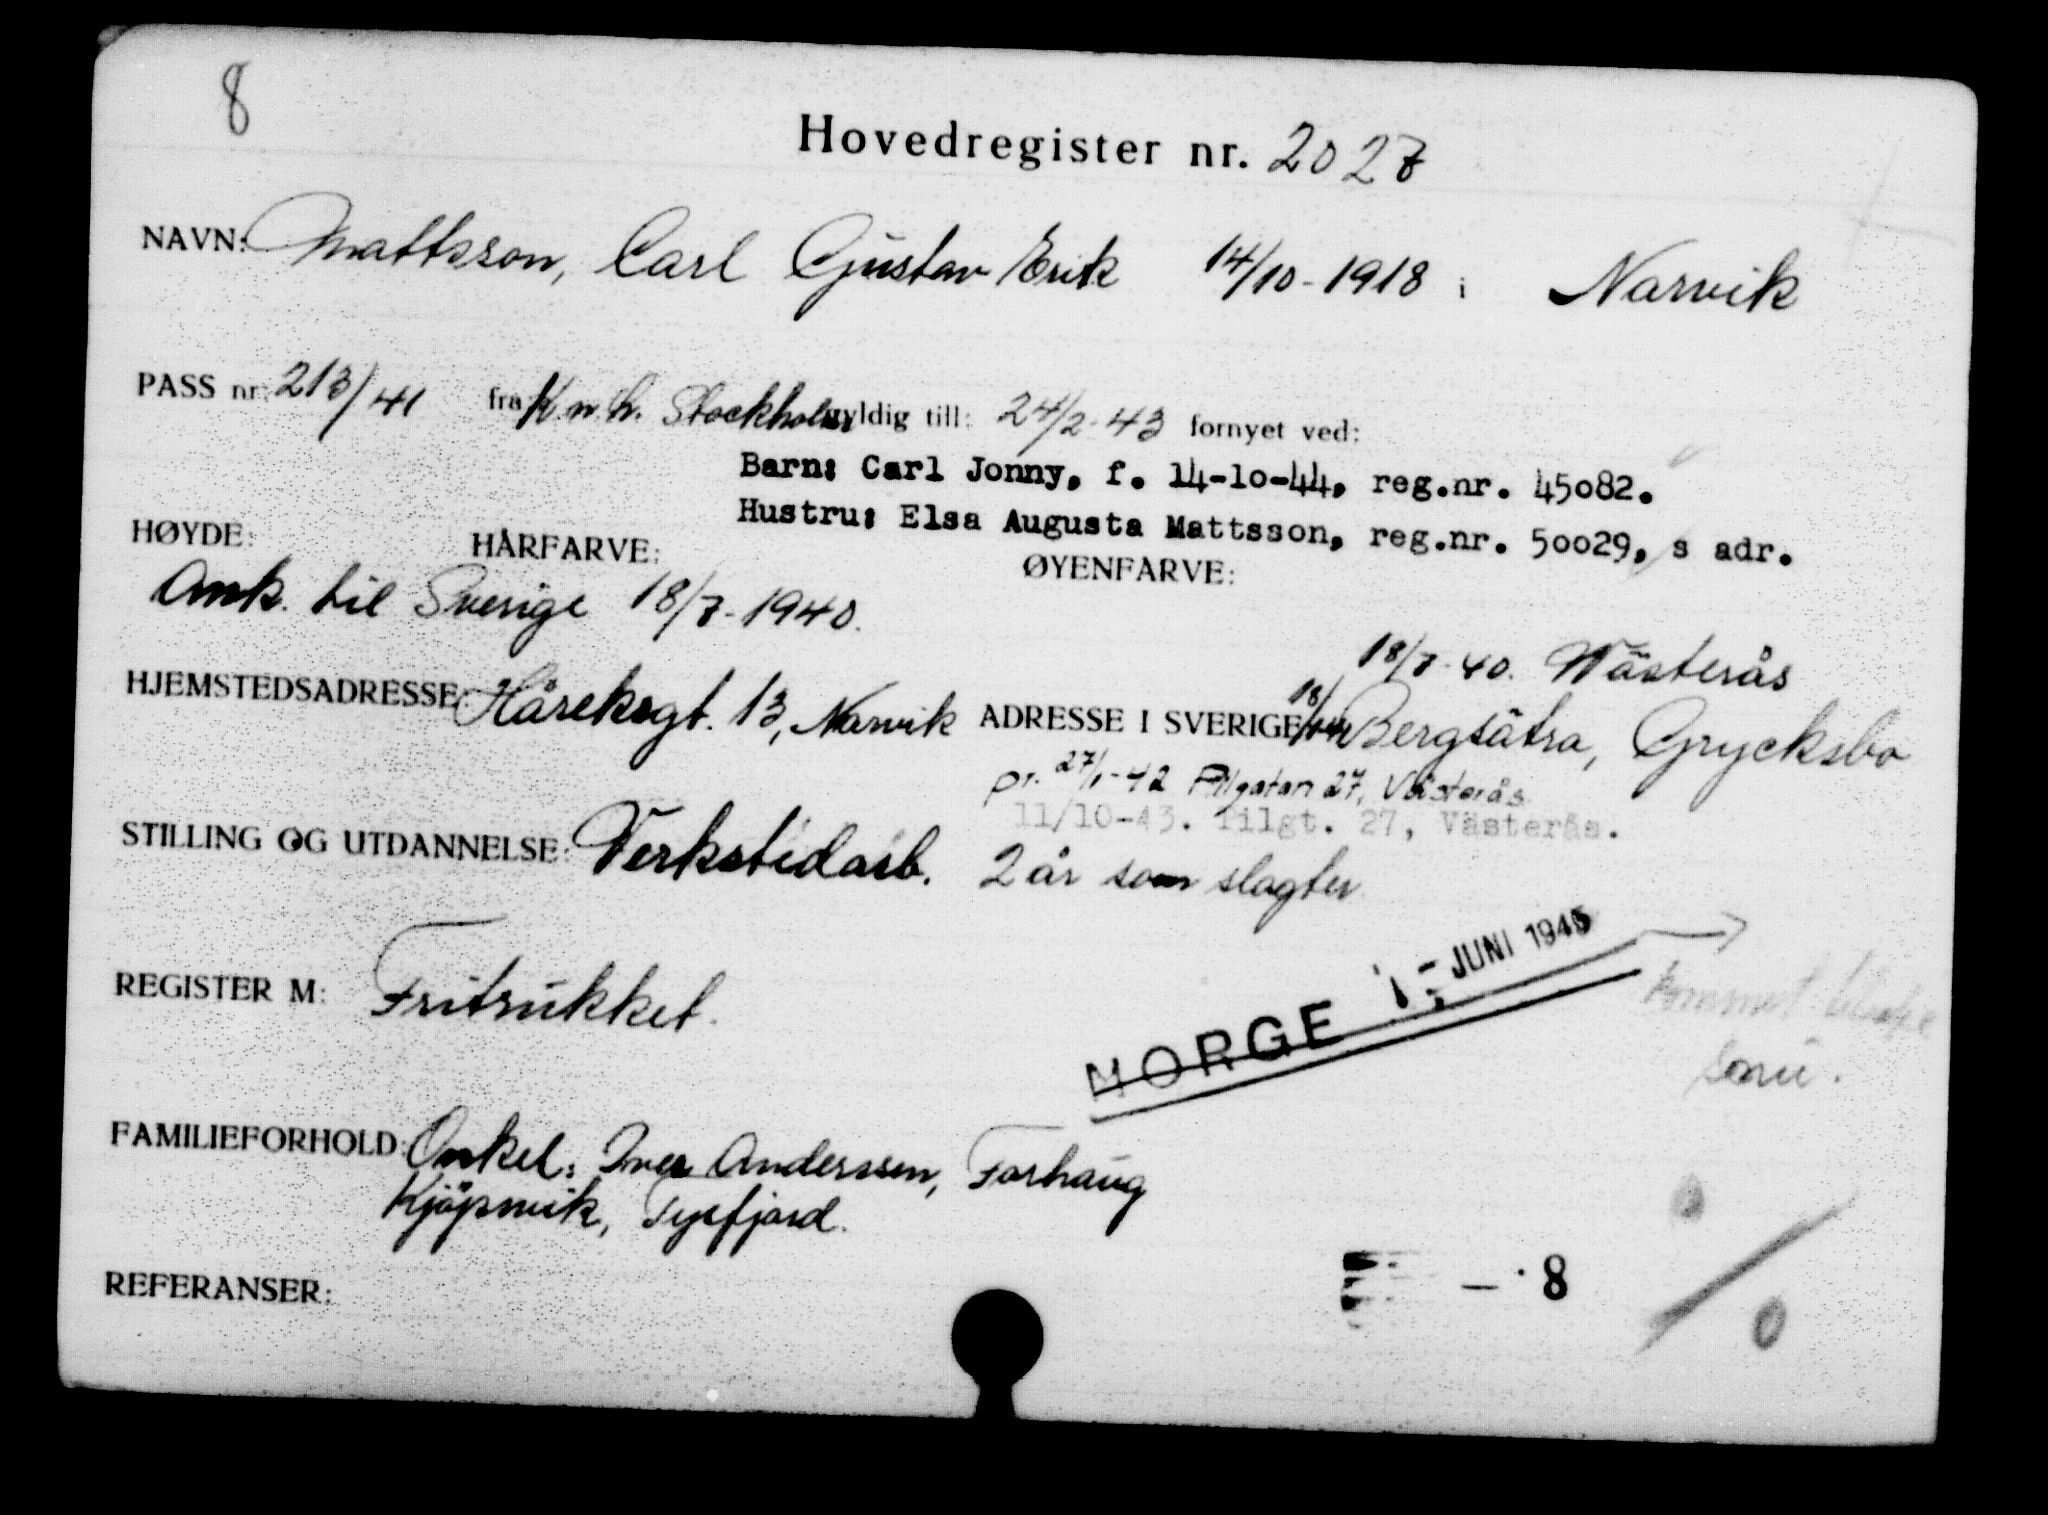 8
Hovedregister nr. 2027
NAVN: Mattsson, Carl Gustav Erik 14/10-1918 i Narvik
PASS nr: 213/41 fra K.n.h. Stockholm gyldig till: 24/2-43 fornyet ved:
Barn: Carl Jonny, f. 14-10-44, reg.nr. 45082.
Hustru: Elsa Augusta Mattsson, reg.nr. 50029, s adr.
HØYDE: HÅRFARVE: ØYENFARVE:
Ank. til Sverige 18/7-1940.
18/7-40. Wästerås
HJEMSTEDSADRESSE: Håreksgt. 13, Narvik ADRESSE I SVERIGE Bergsätra, Grycksbo
pr. 27/1-42 Pilgatan 27, Västerås
11/10-43. Pilgt. 27, Västerås.
STILLING OG UTDANNELSE: Verkstedarb. 2 år som slagter
REGISTER M: Fritrukket.
NORGE JUNI 1945
Kommet
FAMILIEFORHOLD: Onkel: Iver Anderssen, Forhaug
Kjöpsvik, Tysfjord.
REFERANSER:
8